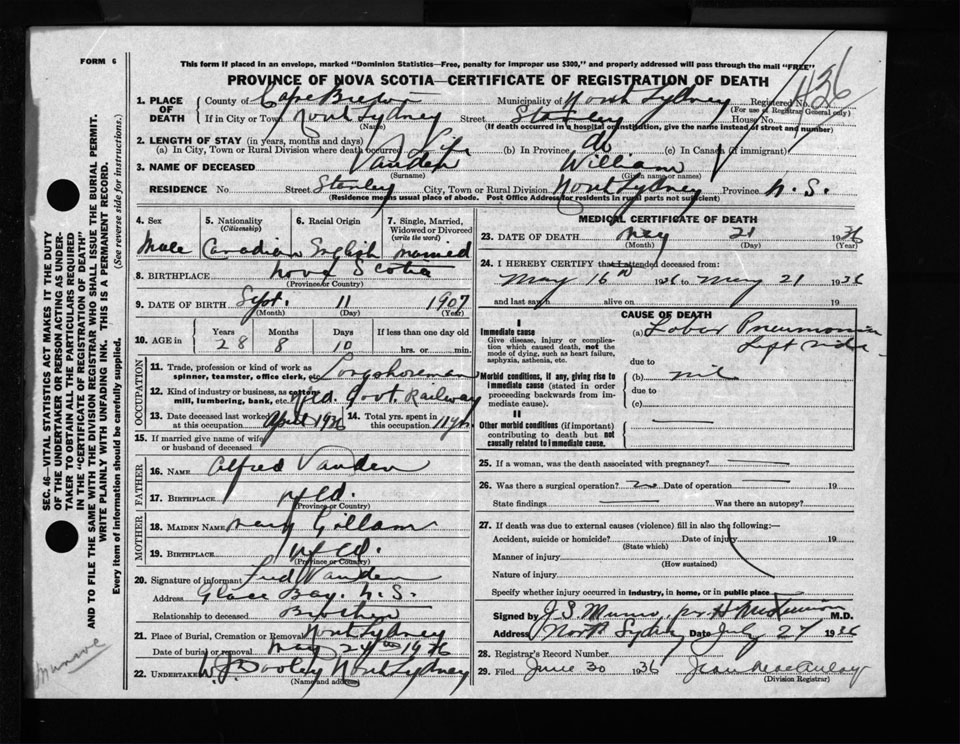 FORM 6
This form if placed in an envelope, marked "Dominion Statistics—Free, penalty for improper use $300," and properly addressed will pass through the mail "FREE"
PROVINCE OF NOVA SCOTIA—CERTIFICATE OF REGISTRATION OF DEATH
436
1. PLACE OF DEATH
County of Cape Breton Municipality of North Sydney Registered No.
(For use of Registrar General only)
If in City or Town North Sydney Street Stanley House No.
(Name) (If death occurred in a hospital or institution, give the name instead of street and number)
2. LENGTH OF STAY (in years, months and days)
(a) In City, Town or Rural Division where death occurred Life (b) In Province do (c) In Canada (if immigrant)
3. NAME OF DECEASED Vanden William
(Surname) (Given name or names)
RESIDENCE No. Street Stanley City, Town or Rural Division North Sydney Province N. S.
(Residence means usual place of abode. Post Office Address for residents in rural parts not sufficient)
4. Sex Male
5. Nationality (Citizenship) Canadian
6. Racial Origin English
7. Single, Married, Widowed or Divorced (write the word) married
8. BIRTHPLACE Nova Scotia
(Province or Country)
9. DATE OF BIRTH Sept. 11 1907
(Month) (Day) (Year)
10. AGE in Years 28 Months 8 Days 10 If less than one day old hrs. or min.
OCCUPATION
11. Trade, profession or kind of work as spinner, teamster, office clerk, etc. Longshoreman
12. Kind of industry or business, as cotton mill, lumbering, bank, etc. Nfld. Govt. Railway
13. Date deceased last worked at this occupation April 1936
14. Total yrs. spent in this occupation 11 yrs.
15. If married give name of wife or husband of deceased
FATHER
16. NAME Alfred Vanden
17. BIRTHPLACE Nfld.
(Province or Country)
MOTHER
18. MAIDEN NAME Mary Gillam
19. BIRTHPLACE Nfld.
(Province or Country)
20. Signature of informant Fred Vanden
Address Glace Bay, N. S.
Relationship to deceased Brother
21. Place of Burial, Cremation or Removal North Sydney
Date of burial or removal May 24th 1936
22. UNDERTAKER W. J. Dooley North Sydney
(Name and address)
MEDICAL CERTIFICATE OF DEATH
23. DATE OF DEATH May 21 1936
(Month) (Day) (Year)
24. I HEREBY CERTIFY that I attended deceased from:
May 16th 1936 to May 21 1936
and last saw h alive on 19
CAUSE OF DEATH
I
Immediate cause
Give disease, injury or complication which caused death, not the mode of dying, such as heart failure, asphyxia, asthenia, etc.
(a) Lobar Pneumonia
Left side
due to
Morbid conditions, if any, giving rise to immediate cause (stated in order proceeding backwards from immediate cause).
(b) nil
due to
(c)
II
Other morbid conditions (if important) contributing to death but not causally related to immediate cause.
25. If a woman, was the death associated with pregnancy?
26. Was there a surgical operation? no Date of operation 19
State findings Was there an autopsy?
27. If death was due to external causes (violence) fill in also the following:—
Accident, suicide or homicide? Date of injury 19
(State which)
Manner of injury
(How sustained)
Nature of injury
Specify whether injury occurred in industry, in home, or in public place
Signed by J. S. Munro, per H McKinnon M.D.
Address North Sydney Date July 27 1936
28. Registrar's Record Number
29. Filed June 30 1936 Jean MacAulay
(Division Registrar)
SEC. 46—VITAL STATISTICS ACT MAKES IT THE DUTY
OF THE UNDERTAKER OR PERSON ACTING AS UNDER-
TAKER TO OBTAIN ALL THE PARTICULARS REQUIRED
IN THE "CERTIFICATE OF REGISTRATION OF DEATH"
AND TO FILE THE SAME WITH THE DIVISION REGISTRAR WHO SHALL ISSUE THE BURIAL PERMIT.
WRITE PLAINLY WITH UNFADING INK. THIS IS A PERMANENT RECORD.
Every item of information should be carefully supplied. (See reverse side for instructions.)
Munroe